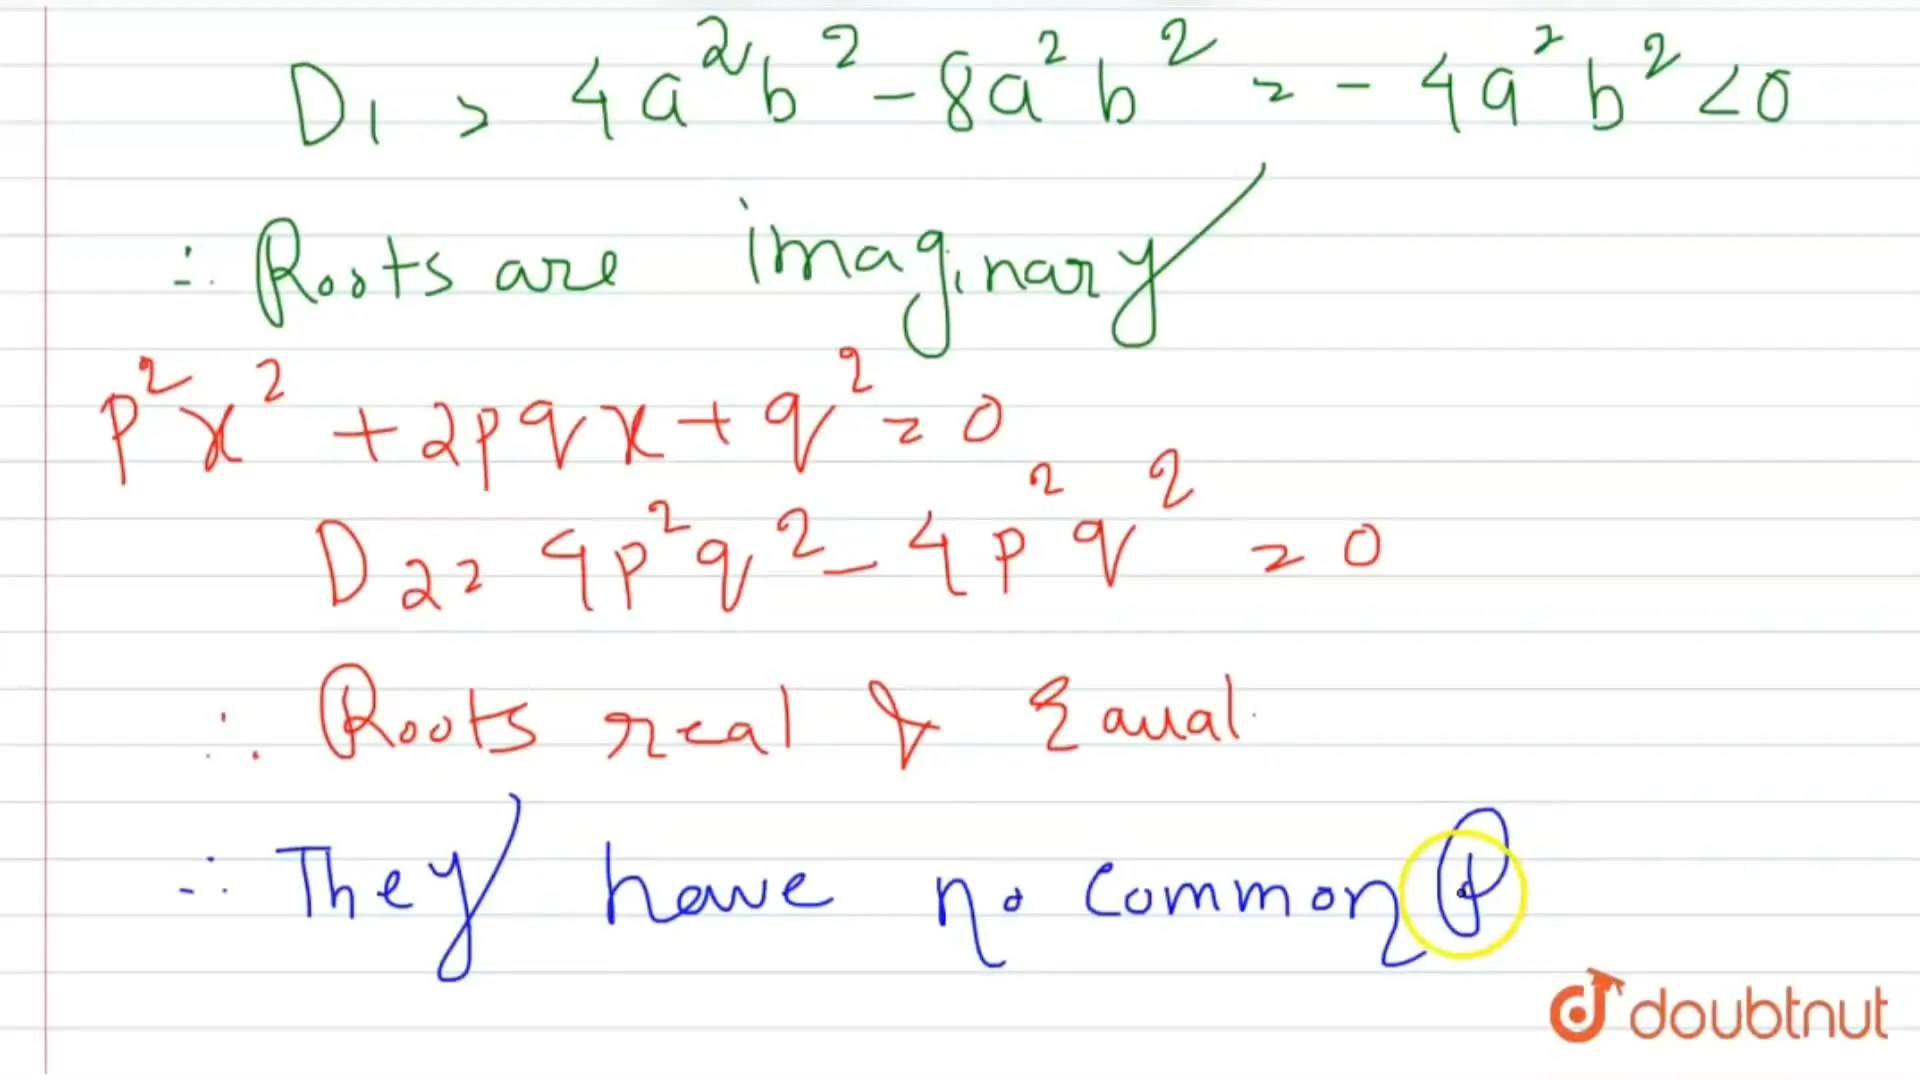 D₁ = 4a²b² - 8a²b² = - 4a²b² < 0
∴ Roots are imaginary
p²x² + 2pqx + q² = 0
D₂ = 4p²q² - 4p²q² = 0
∴ Roots real & Equal
∴ They have no common R
doubtnut